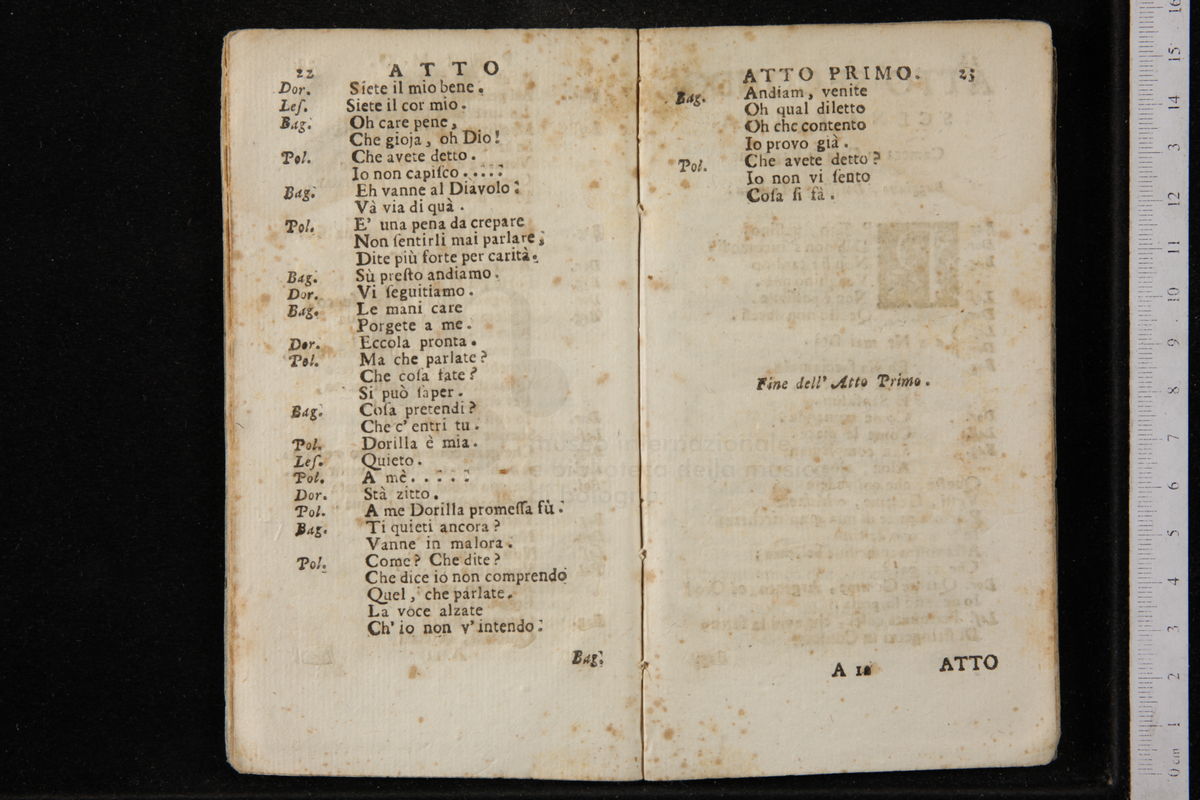 22 ATTO
Dor. Siete il mio bene.
Leſ. Siete il cor mio.
Bag. Oh care pene,
Che gioja, oh Dio!
Pol. Che avete detto.
Io non capiſco.....
Bag. Eh vanne al Diavolo:
Và via di quà.
Pol. E' una pena da crepare
Non ſentirli mai parlare;
Dite più forte per carità.
Bag. Sù preſto andiamo.
Dor. Vi ſeguitiamo.
Bag. Le mani care
Porgete a me.
Dor. Eccola pronta.
Pol. Ma che parlate?
Che coſa fate?
Si può ſaper.
Bag. Coſa pretendi?
Che c' entri tu.
Pol. Dorilla è mia.
Leſ. Quieto.
Pol. A mè.....
Dor. Stà zitto.
Pol. A me Dorilla promeſſa fù:
Bag. Ti quieti ancora?
Vanne in malora.
Pol. Come? Che dite?
Che dice io non comprendo
Quel, che parlate.
La voce alzate
Ch' io non v' intendo:
Bag.
ATTO PRIMO. 23
Bag. Andiam, venite
Oh qual diletto
Oh che contento
Io provo già.
Pol. Che avete detto?
Io non vi ſento
Coſa ſi fà.
Fine dell' Atto Primo.
A 12 ATTO
museo internazionale
e biblioteca della musica
bologna
0 cm 1 2 3 4 5 6 7 8 9 10 11 12 3 14 15 16